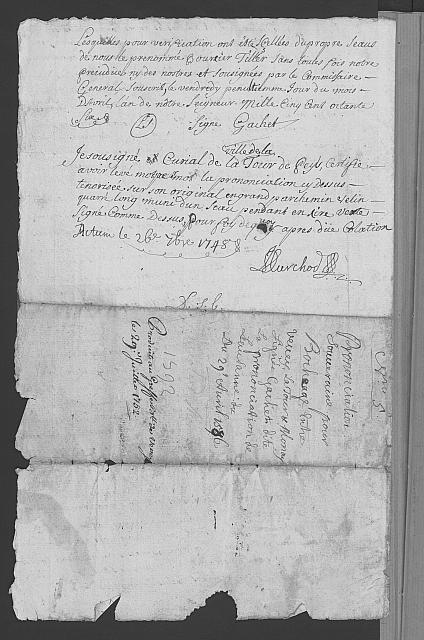 Lesquelles pour verification ont été scellées du propre seaus
de nous le prenommé Boursier Tiller sans toutes fois notre
prejudice ny des nostres et sousignées par le Commissaire
General Soussrit, le vendredy penultiemme Jour du mois
D'Avril, l'an de nôtre Seigneur Mille Cinq Cent octante
Six
Signé Gachet
Je sousigné Curial de la Ville de la Tour de Peyl, Certifie
avoir levé mot à mot la prononciation cy dessus
tenorisée sur son original en grand parchemin velin
quarré long muni d'un Seau pendant en cire verte
Signé Comme Dessus, pour foy de quoy apres düe Colation
Actum le 26e 7bre 1748
Prononciation
Souveraine pour
Bochéage entre
Vevey, La Tour &
Signée Gachet dite
La Prononciation de
Lausanne du
Du 29 Avril 1586
1592
le 29e Juillet 1752